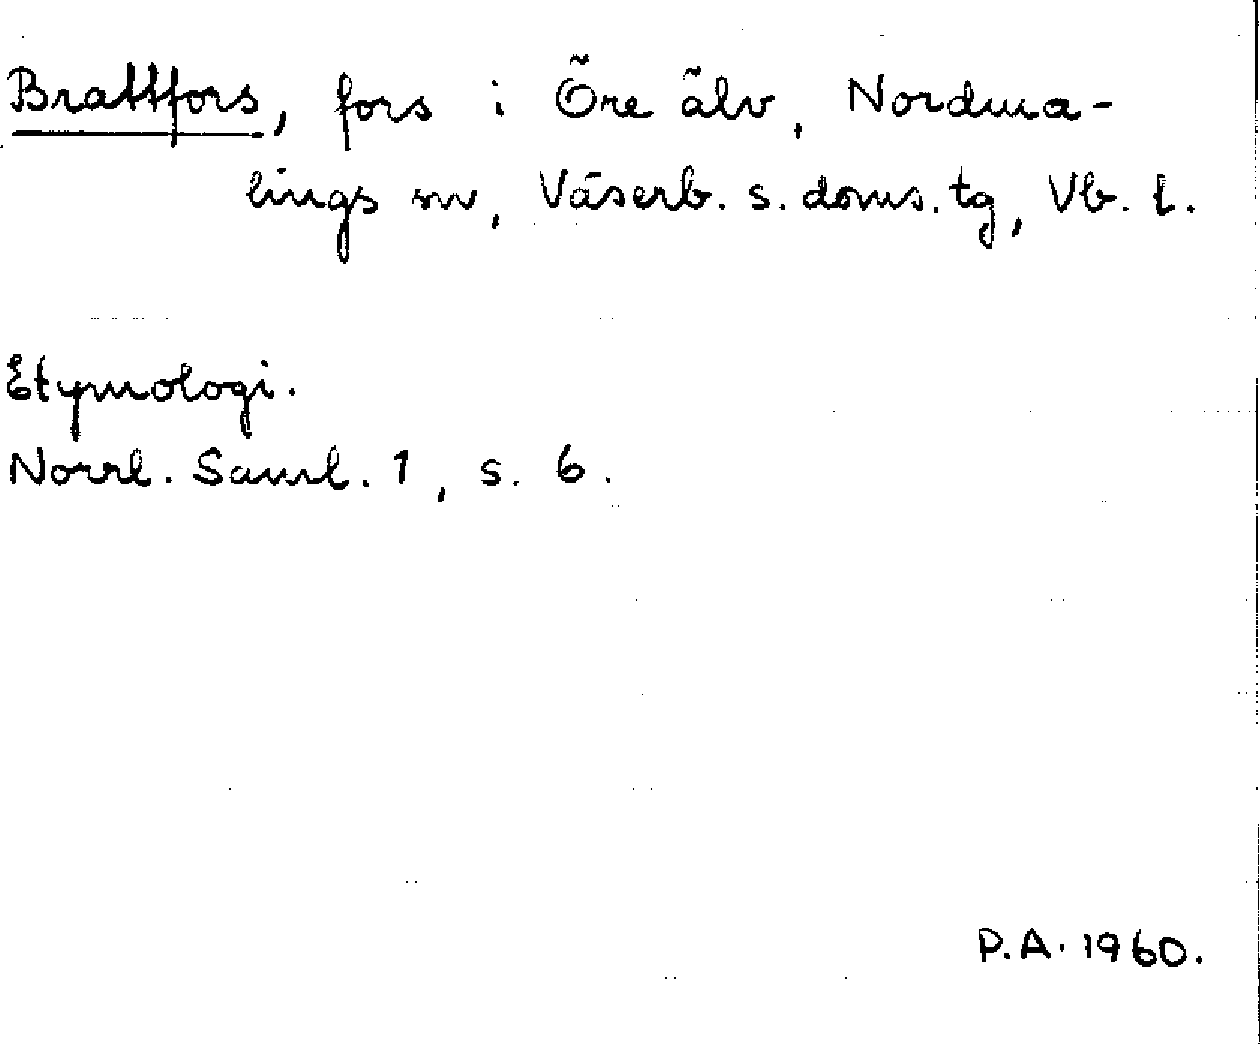 Brattfors, fors i Öre älv, Nordma-
lings sn, Väserb. s. doms. tg, Vb. l.
Etymologi.
Norrl. Saml. 1, s. 6.
P.A. 1960.